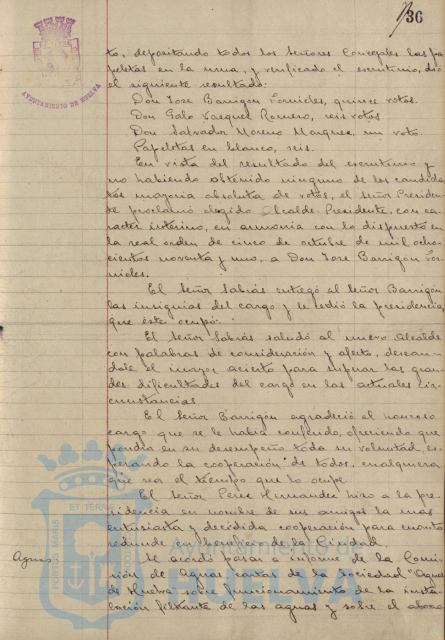 136
AYUNTAMIENTO DE HUELVA
to, depositando todos los Señores Concejales las pa-
peletas en la urna, y verificado el escrutinio, dió
el siguiente resultado:
Don Jose Barrigón Fornieles, quince votos.
Don Galo Vazquez Romero, seis votos
Don Salvador Moreno Marquez, un voto.
Papeletas en blanco, seis.
En vista del resultado del escrutinio y
no habiendo obtenido ninguno de los candida-
tos mayoria absoluta de votos, el Señor Presiden-
te proclamó elegido Alcalde-Presidente, con ca-
racter interino, en armonia con lo dispuesto en
la real orden de cinco de octubre de mil ocho-
cientos noventa y uno, a Don Jose Barrigón For-
nieles.
El Señor Sabrás entregó al Señor Barrigón
las insignias del cargo y le cedió la presidencia
que éste ocupó.
El Señor Sabrás saludó al nuevo Alcalde
con palabras de consideración y afecto, desean-
dole el mayor acierto para superar las gran-
des dificultades del cargo en las actuales cir-
cunstancias.
El Señor Barrigón agradeció el honroso
cargo que se le habia conferido, ofreciendo que
pondria en su desempeño toda su voluntad, es-
perando la cooperación de todos, cualquiera
que sea el tiempo que lo ocupe.
El Señor Perez Hernandez hizo a la pre-
sidencia en nombre de sus amigos la mas
entusiasta y decidida cooperación para cuanto
redunde en beneficio de la Ciudad.
Aguas.
Se acordó pasar a informe de la Comi-
sión de Aguas cartas de la Sociedad "Aguas
de Huelva" sobre funcionamiento de la insta-
lación filtrante de las aguas y sobre el abono
Ayuntamiento de
HUELVA